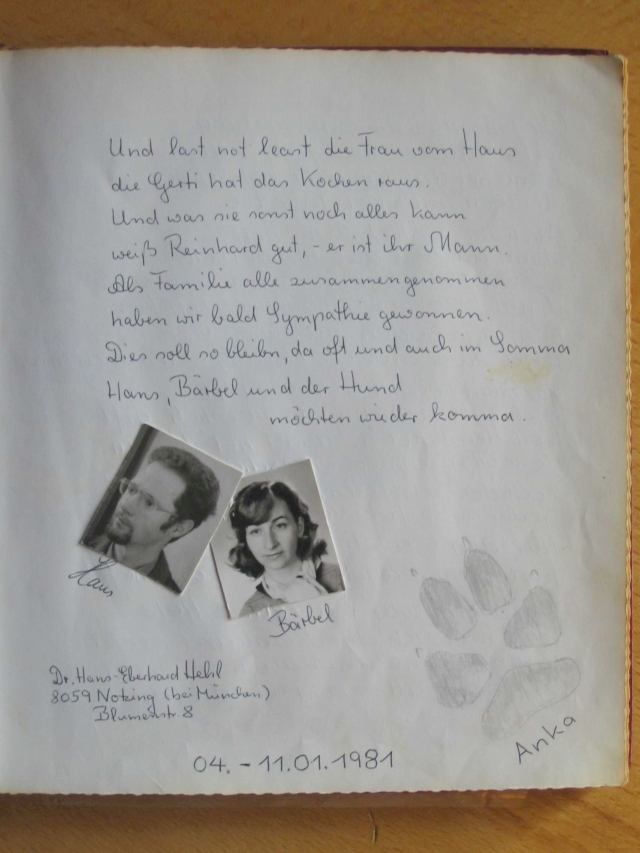 Und last not least die Frau vom Haus
die Gerti hat das Kochen raus.
Und was sie sonst noch alles kann
weiß Reinhard gut, - er ist ihr Mann.
Als Familie alle zusammengenommen
haben wir bald Sympathie gewonnen.
Dies soll so bleibn, da oft und auch im Somma
Hans, Bärbel und der Hund
möchten wieder komma.
Hans
Bärbel
Dr. Hans-Eberhard Hehl
8059 Notzing (bei München)
Blumenstr. 8
Anka
04. - 11.01.1981